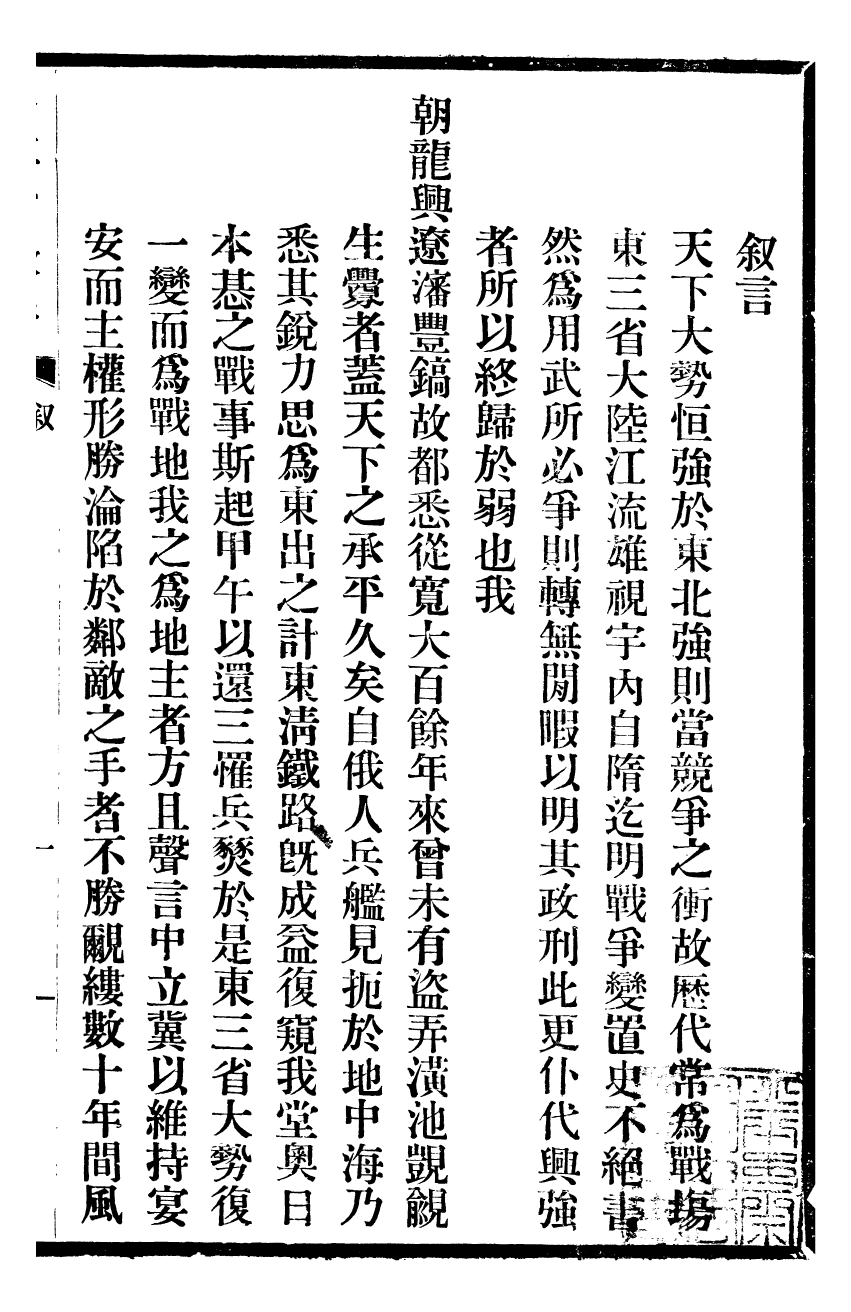 叙言
天下大勢恒強於東北強則當競爭之衝故歴代常爲戰塲
東三省大陸江流雄視宇內自隋迄明戰爭變置史不絕書
然爲用武所必爭則轉無閒暇以明其政刑此更仆代興強
者所以終歸於弱也我
朝龍興遼瀋豐鎬故都悉從寬大百餘年來曾未有盜弄潢池覬覦
生釁者蓋天下之承平久矣自俄人兵艦見扼於地中海乃
悉其銳力思爲東出之計東淸鐵路旣成益復窺我堂奧日
本惎之戰事斯起甲午以還三罹兵燹於是東三省大勢復
一變而爲戰地我之爲地主者方且聲言中立冀以維持宴
安而主權形勝淪陷於鄰敵之手者不勝覼縷數十年間風
叙
一